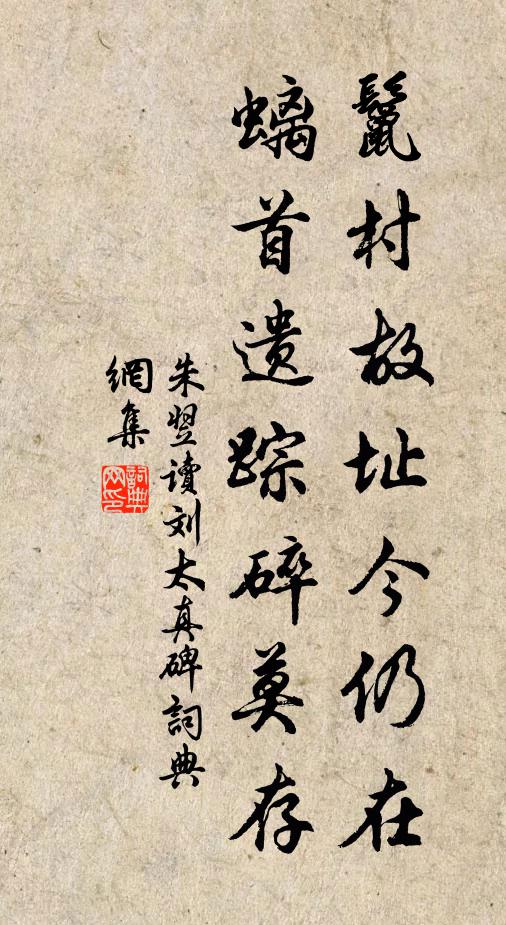 鬣村故址今仍在
螭首遗踪碎莫存
朱翌读刘太真碑詞典
網集
詞典
网印